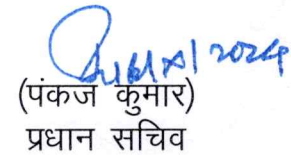 2024
(पंकज कुमार)
प्रधान सचिव